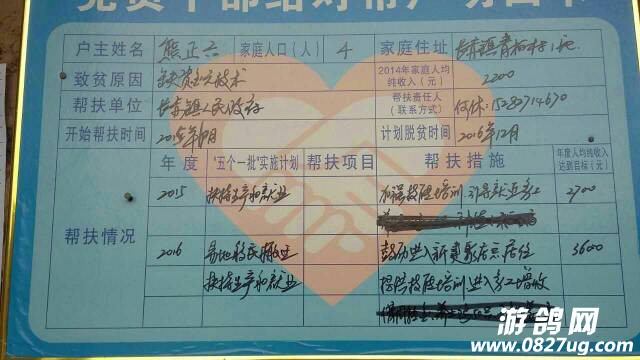 党员干部结对帮户明白卡
户主姓名 熊正六 家庭人口（人） 4 家庭住址 长寿镇青柏村1社
致贫原因 缺资金技术 2014年家庭人均纯收入（元） 2200
帮扶单位 长寿镇人民政府 帮扶责任人（联系方式）
开始帮扶时间 计划脱贫时间 2016年12月
年度 “五个一批”实施计划 帮扶项目 帮扶措施 年度人均纯收入达到目标（元）
帮扶情况
2015 扶持生产和就业 加强技能培训 引导就业务工 2700
2016 易地移民搬迁 鼓励进入新建聚居点居住 3600
扶持生产和就业 提供技能培训 进入务工增收
游鸽网
www.0827ug.com